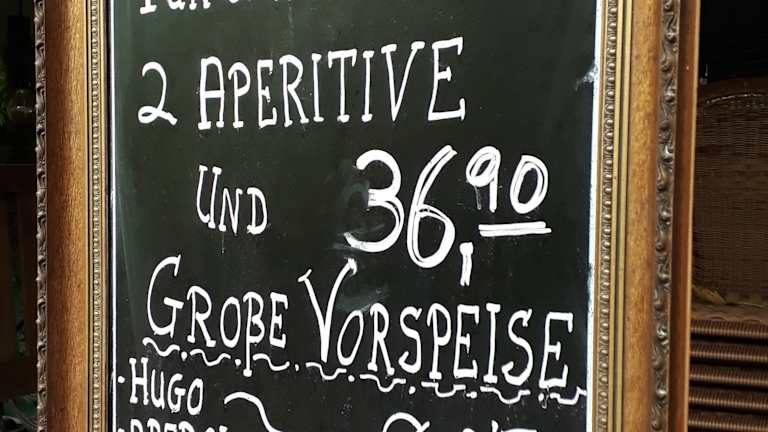 2 APERITIVE
UND 36,90
GROßE VORSPEISE
·HUGO